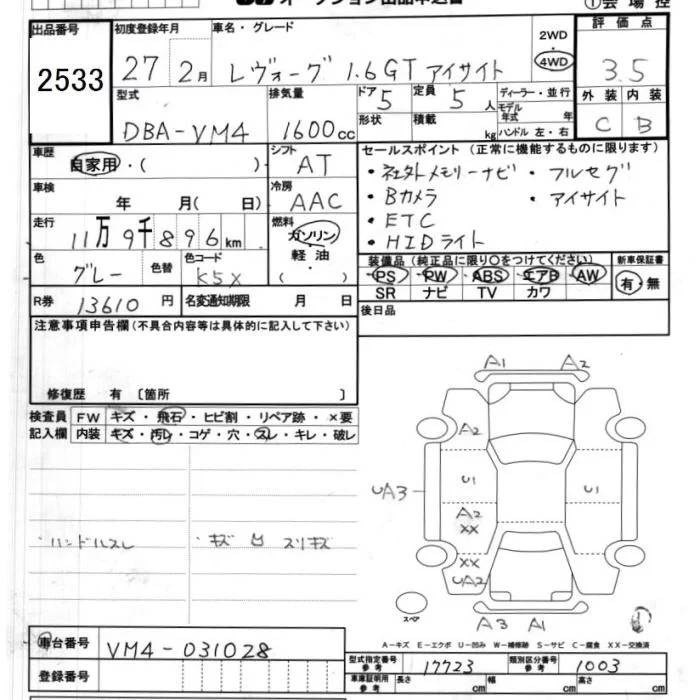 ①会場控
出品番号 2533
初度登録年月 27 2月
車名・グレード レヴォーグ 1.6GT アイサイト
2WD
4WD
評価点 3.5
外装 内装
C B
型式 DBA-VM4
排気量 1600cc
ドア 5
定員 5人
形状
積載 kg
ディーラー・並行
モデル年式 年
ハンドル 左・右
車歴 自家用・( )
シフト AT
車検 年 月( 日)
冷房 AAC
走行 11万9千896km
燃料 ガソリン
軽油
( )
色 グレー 色替
色コード K5X
R券 13610円
名変通知期限 月 日
セールスポイント(正常に機能するものに限ります)
・社外メモリーナビ ・フルセグ
・Bカメラ ・アイサイト
・ETC
・HIDライト
装備品(純正品に限り○をつけてください)
PS PW ABS エアB AW
SR ナビ TV カワ
新車保証書
有・無
後日品
注意事項申告欄(不具合内容等は具体的に記入して下さい)
修復歴 有〔箇所 〕
検査員記入欄
FW キズ・飛石・ヒビ割・リペア跡・×要
内装 キズ・汚レ・コゲ・穴・スレ・キレ・破レ
・ハンドルスレ ・キズ 凹 スリキズ
A1 A2
A2
U1 U1
UA3
A2
XX
XX
UA2
スペア
A3 A1
A-キズ E-エクボ U-凹み W-補修跡 S-サビ C-腐食 XX-交換済
車台番号 VM4-031028
登録番号
型式指定番号 参考 17723
類別区分番号 参考 1003
車庫証明用 参考 長さ cm 幅 cm 高さ cm